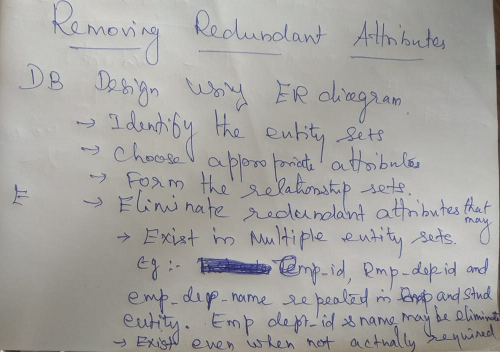 Removing Redundant Attributes
DB Design Using ER diagram.
→ Identify the entity sets
→ Choose appropriate attributes
→ Form the relationship sets.
E → Eliminate redundant attributes that may
→ Exist in Multiple entity sets.
Eg :- Emp-id, Emp-dep id and
emp_dep_name repeated in Emp and stud
entity. Emp dept-id & name may be elimin
→ Exist even when not actually required